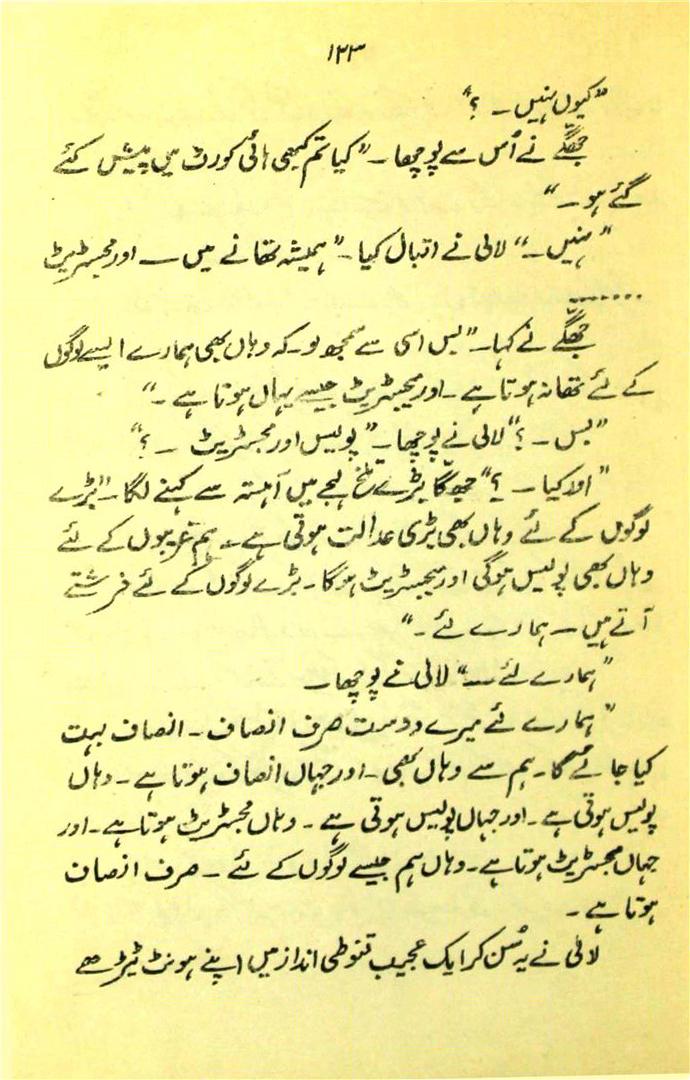 ۱۲۳
"کیوں نہیں ۔ ؟"
جھگے نے اُس سے پوچھا ۔ "کیا تم کبھی ہائی کورٹ میں پیش کئے
گئے ہو ۔"
"نہیں ۔" لالی نے اقبال کیا ۔ "ہمیشہ تھانے میں ـــ اور مجسٹریٹ
.......
جھگے نے کہا ۔ "بس اسی سے سمجھ لو ۔ کہ وہاں بھی ہمارے ایسے لوگوں
کے لئے تھانہ ہوتا ہے ۔ اور مجسٹریٹ جیسے یہاں ہوتا ہے ۔"
"بس ۔ ؟" لالی نے پوچھا ۔ "پولیس اور مجسٹریٹ ۔ ؟"
"اور کیا ۔ ؟" جھگا بڑے تلخ لہجے میں آہستہ سے کہنے لگا ۔ "بڑے
لوگوں کے لئے وہاں بھی بڑی عدالت ہوتی ہے ۔ ہم غریبوں کے لئے
وہاں بھی پولیس ہوگی اور مجسٹریٹ ہوگا ۔ بڑے لوگوں کے لئے فرشتے
آتے ہیں ــ ہمارے لئے ۔"
"ہمارے لئے ــ" لالی نے پوچھا ۔
"ہمارے لئے میرے دوست صرف انصاف ۔ انصاف بہت
کیا جائے گا ۔ ہم سے وہاں بھی ۔ اور جہاں انصاف ہوتا ہے ۔ وہاں
پولیس ہوتی ہے ۔ اور جہاں پولیس ہوتی ہے ۔ وہاں مجسٹریٹ ہوتا ہے ۔ اور
جہاں مجسٹریٹ ہوتا ہے ۔ وہاں ہم جیسے لوگوں کے لئے ۔ صرف انصاف
ہوتا ہے ۔
لالی نے یہ سُن کر ایک عجیب قنوطی انداز میں اپنے ہونٹ ٹیڑھے